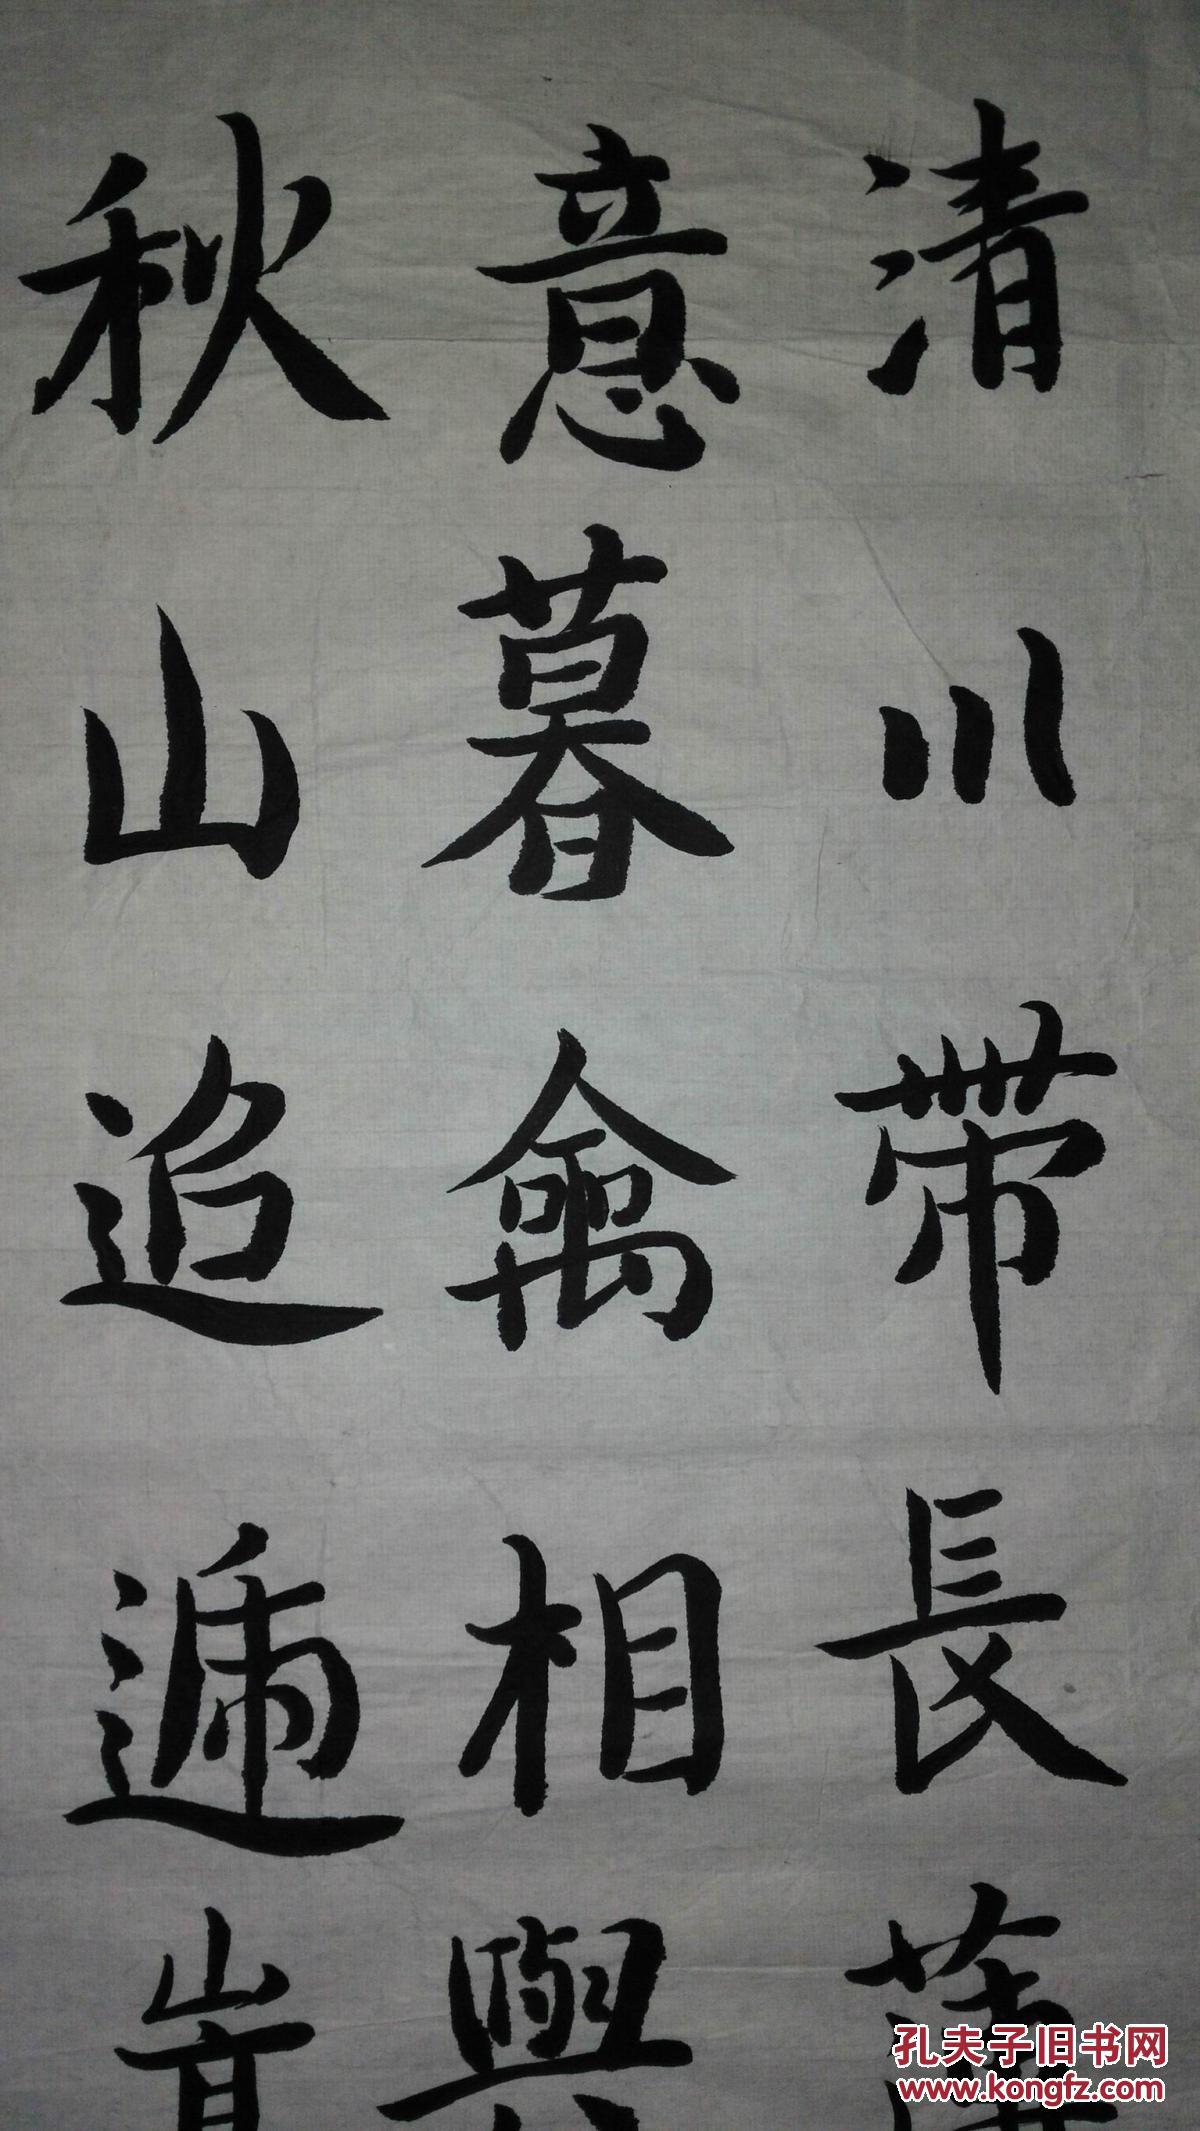 清川帶長薄
意暮禽相與
秋山追遞嵩
孔夫子旧书网
www.kongfz.com